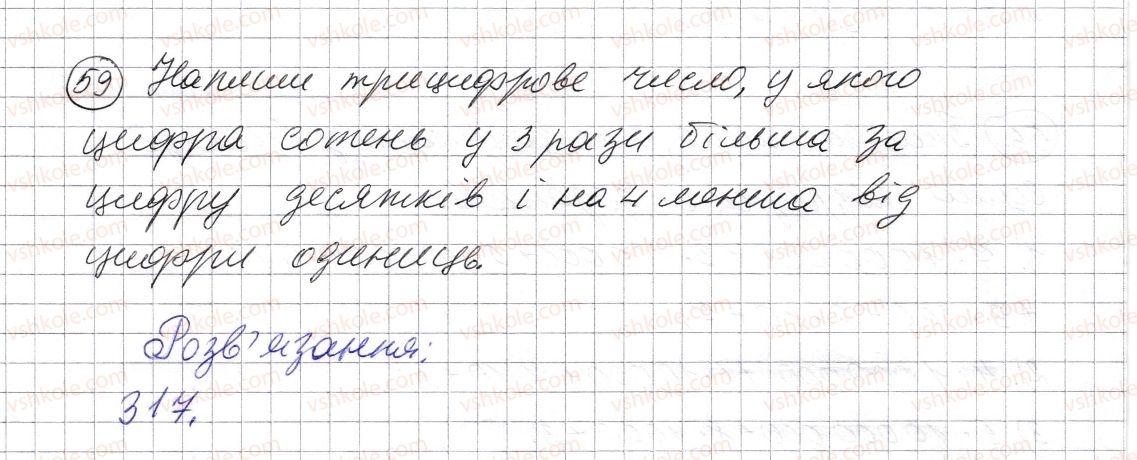 59 Напиши трицифрове число, у якого
цифра сотень у 3 рази більша за
цифру десятків і на 4 менша від
цифри одиниць.
Розв'язання:
317.